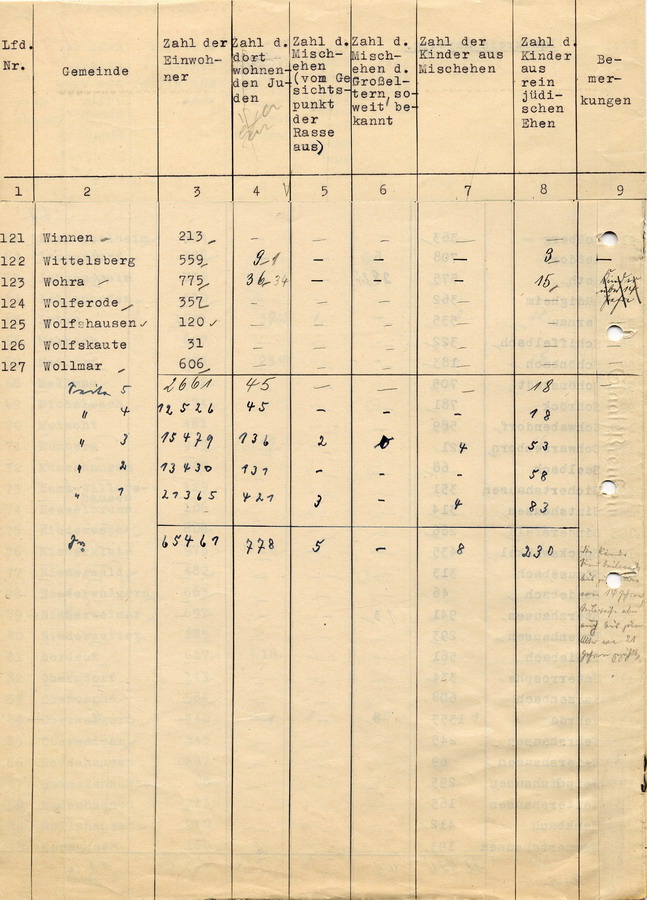 Lfd. Nr.
Gemeinde
Zahl der Einwoh- ner
Zahl d. dort wohnen- den Ju- den
Zahl d. Misch- ehen (vom Ge sichts- punkt der Rasse aus)
Zahl d. Misch- ehen d. Großel- tern, so- weit be- kannt
Zahl der Kinder aus Mischehen
Zahl d. Kinder aus rein jüdi- schen Ehen
Be- mer- kungen
1 2 3 4 5 6 7 8 9
121 Winnen 213 - - - - -
122 Wittelsberg 559 - - - 3 -
123 Wohra 775 36 34 - - - 15
124 Wolferode 357 - - - - -
125 Wolfshausen 120 - - - - -
126 Wolfskaute 31 - - - - -
127 Wollmar 606 - - - - -
Seite 5 2661 45 - - - 18
" 4 12526 45 - - - 18
" 3 15479 136 2 4 53
" 2 13430 131 - - - 58
" 1 21365 421 3 - 4 83
65461 778 5 - 8 230